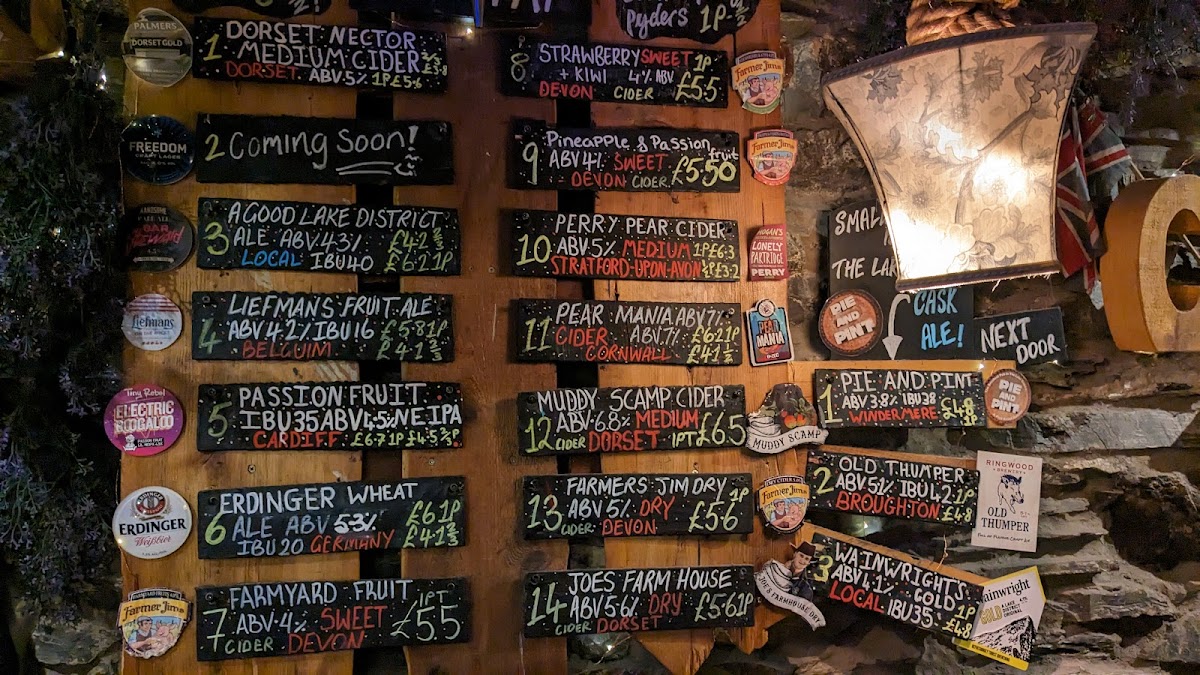 PALMERS
DORSET GOLD
1 DORSET NECTOR
MEDIUM CIDER
DORSET ABV.5% 1P£5.6
FREEDOM
CRAFT LAGER
2 Coming Soon!
3 A GOOD LAKE DISTRICT
ALE ABV.43%
LOCAL IBU40 £6.21P
Liefmans
4 LIEFMANS FRUIT ALE
ABV4.2% IBU16 £5.81P
BELGUIM £4.1 2/3
Tiny Rebel
ELECTRIC
BOOGALOO
5 PASSION FRUIT
IBU35 ABV4.5% NEIPA
CARDIFF £6.71P £4.5 2/3P
ERDINGER
Weißbier
6 ERDINGER WHEAT
ALE ABV 5.3% £6.1P
IBU20 GERMANY £4.1 2/3
Farmer Jim's
7 FARMYARD FRUIT
ABV4% SWEET 1PT
CIDER DEVON £5.5
Pyders 1P
8 STRAWBERRY SWEET 1P
+ KIWI 4% ABV
DEVON CIDER £5.5
Farmer Jim's
9 Pineapple & Passion
fruit
ABV4% SWEET £5.50
DEVON CIDER
Farmer Jim's
10 PERRY PEAR CIDER
ABV.5% MEDIUM 1P£6.3
STRATFORD-UPON-AVON £3.2
HOGAN'S
LONELY
PARTRIDGE
PERRY
11 PEAR MANIA ABV7%
CIDER ABV.7% £6.21P
CORNWALL £4.1 2/3
PEAR
MANIA
12 MUDDY SCAMP CIDER
ABV-6.8% MEDIUM
CIDER DORSET 1PT £6.5
MUDDY SCAMP
13 FARMERS JIM DRY 1P
ABV5% DRY
CIDER DEVON £5.6
Farmer Jim's
14 JOES FARM HOUSE
ABV5.6% DRY £5.61P
CIDER DORSET
JOE'S
FARMHOUSE DRY
THE
CASK
ALE!
NEXT
DOOR
PIE
AND
PINT
1 PIE AND PINT
ABV3.8% IBU38 1P
WINDERMERE £4.8
PIE
AND
PINT
2 OLD THUMPER
ABV5.1% IBU42 1P
BROUGHTON £4.8
RINGWOOD
BREWERY
OLD
THUMPER
3 WAINWRIGHT'S
ABV4.1% GOLD
LOCAL IBU35 1P
£4.8
Wainwright
GOLD